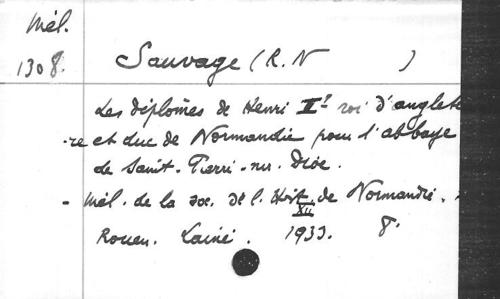 Mél.
1308. Sauvage (R.N )
Les diplômes de Henri II? roi d'anglete
-re et duc de Normandie pour l'abbaye
de Saint-Pierre-sur-Dive.
- Mél. de la soc. de l'Hist. de Normandie.
XII
Rouen. Lainé. 1933. 8.